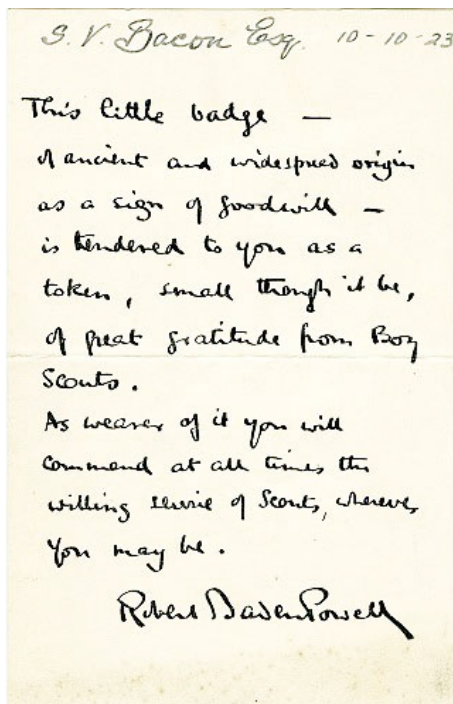 S. V. Bacon Esq. 10-10-23
This little badge —
of ancient and widespread origin
as a sign of goodwill —
is tendered to you as a
token, small though it be,
of great gratitude from Boy
Scouts.
As wearer of it you will
command at all times the
willing service of Scouts, wherever
you may be.
Robert Baden Powell